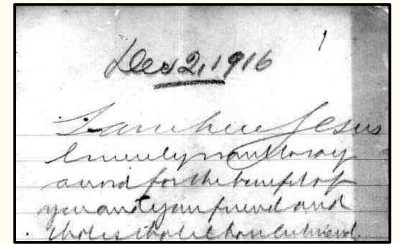 Dec 2, 1916
1
I am here Jesus
I merely want to say
a word for the benefit of
you and your friend and
that is that